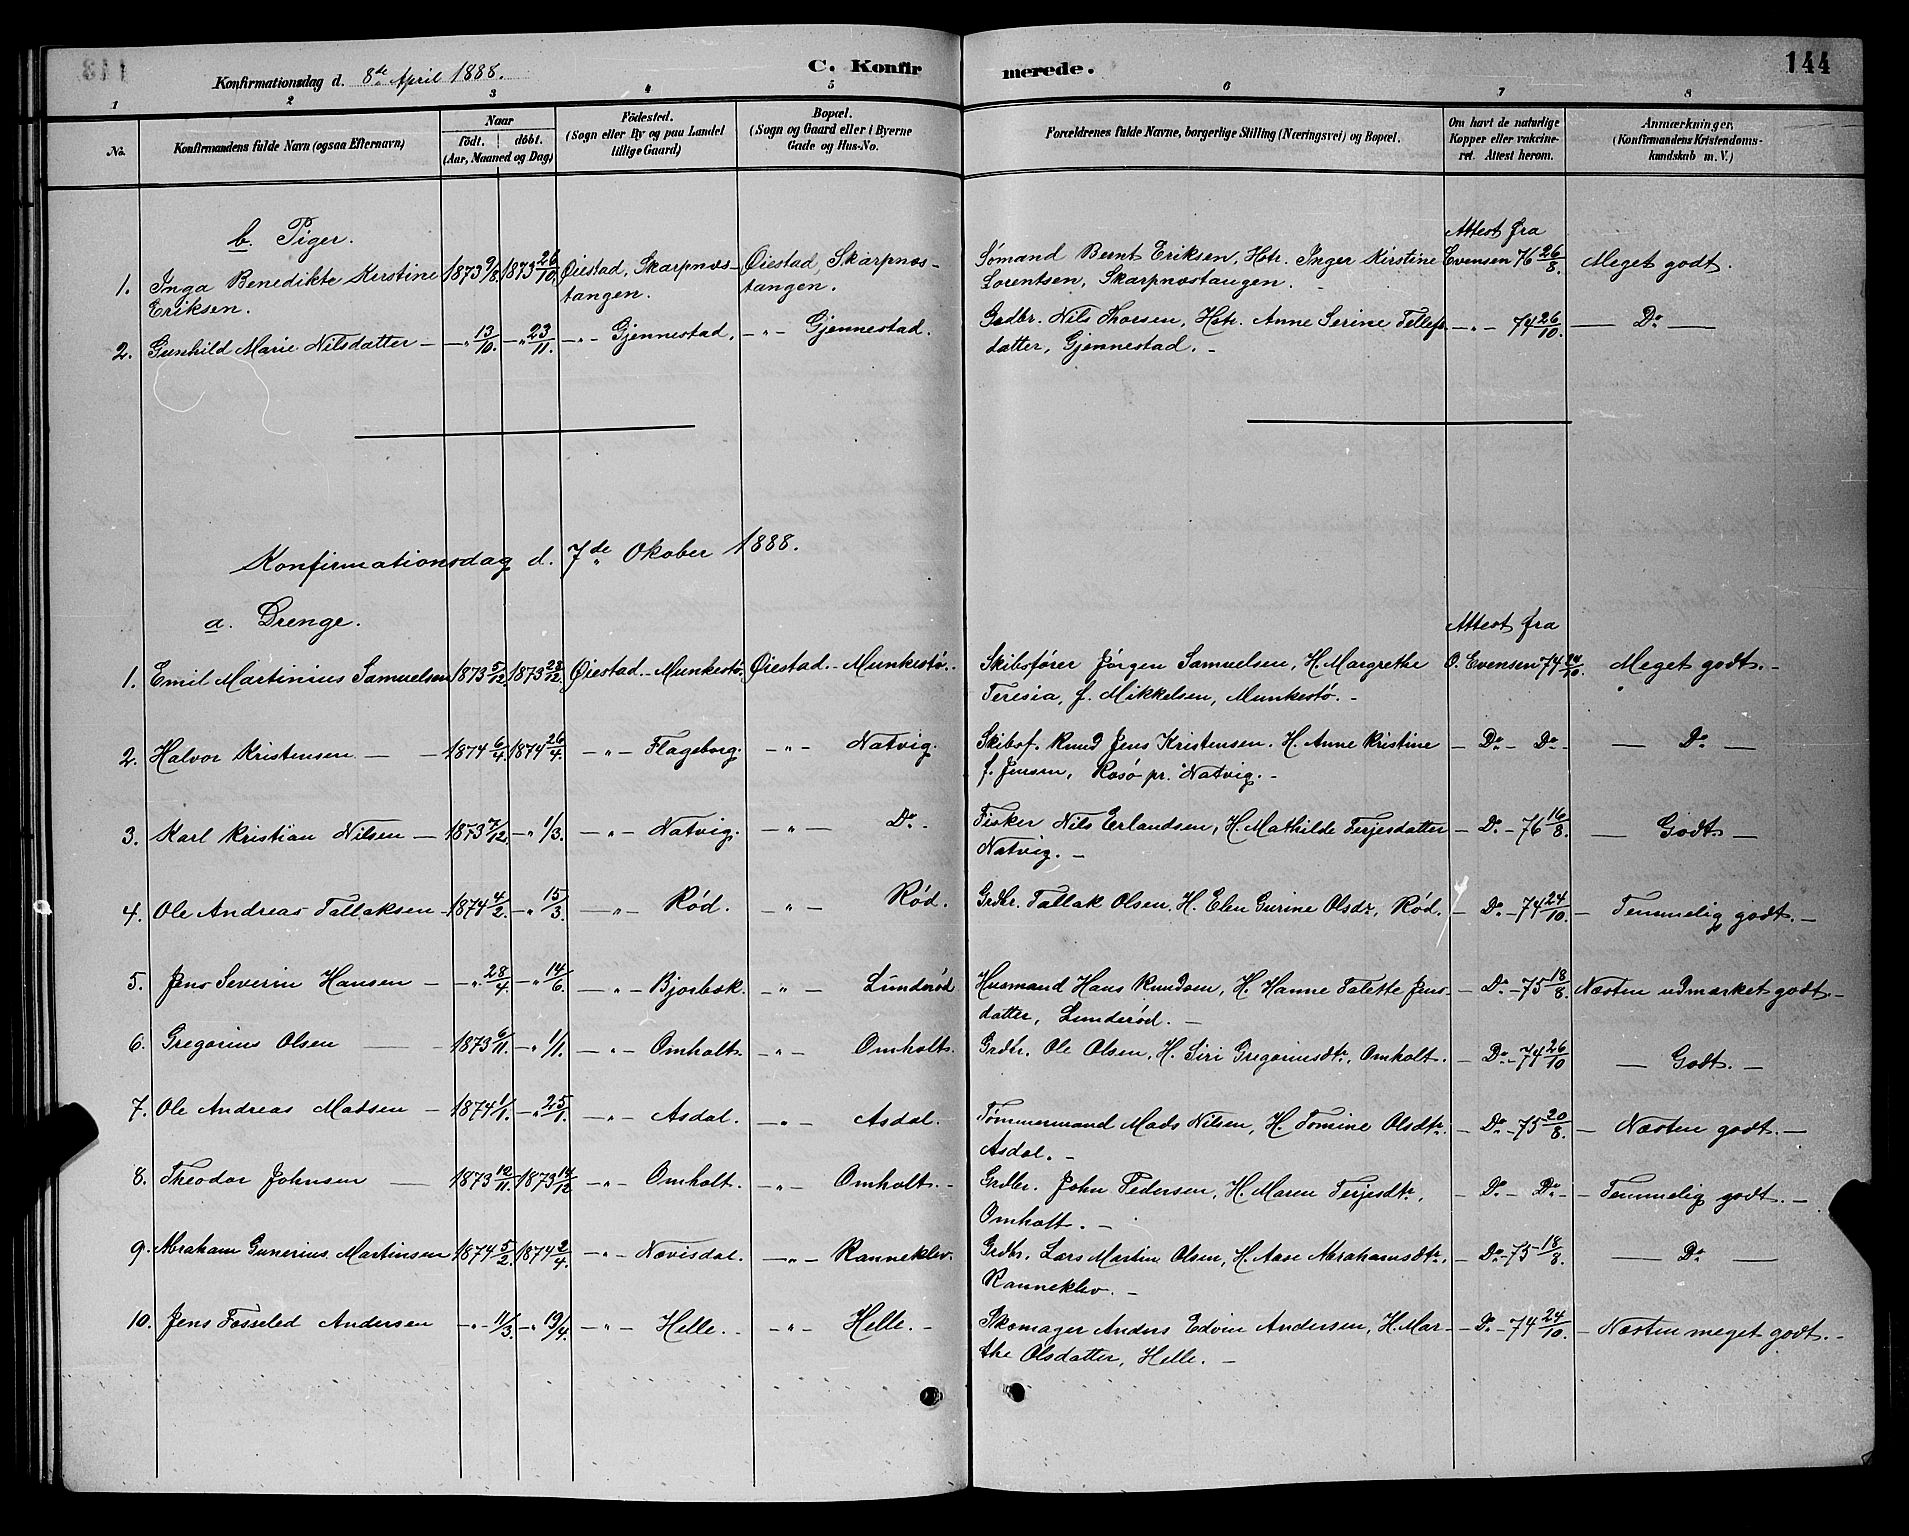 144
Konfirmationsdag d. 8de April 1888.
C. Konfirmerede.
1 2 3 4 5 6 7 8
No. Konfirmandens fulde Navn (ogsaa Efternavn) Naar födt. döbt. (Aar, Maaned og Dag) Födested. (Sogn eller By og paa Landet tillige Gaard) Bopæl. (Sogn og Gaard eller i Byerne Gade og Hus-No. Forældrenes fulde Navne, borgerlige Stilling (Næringsvei) og Bopæl. Om havt de naturlige Kopper eller vakcineret. Attest herom. Anmærkninger, (Konfirmandens Kristendomskundskab m. V.)
b. Piger.
Attest fra
1. Inga Benedikte Kirstine 1873 9/8. 1873 26/10. Øiestad, Skarpnæs- Øiestad, Skarpnæs- Sømand Bernt Eriksen, Hstr. Inger Kirstine Evensen 76 26/8. Meget godt.
Eriksen. tangen. tangen. Lorentsen, Skarpnæstangen. -
2. Gunhild Marie Nilsdatter - -"- 13/10. -"- 23/11. -"- Gjennestad. -"- Gjennestad. Grdbr. Nils Thorsen, Hstr. Anne Serine Tellefs- -"- 74 26/10. - Do -
datter, Gjennestad. -
Konfirmationsdag d. 7de Okober 1888.
a. Drenge.
Attest fra
1. Emil Martinius Samuelsen 1873 5/12. 1873 28/12. Øiestad. - Munkestø. Øiestad. - Munkestø. Skibsfører Jørgen Samuelsen, H. Margrethe O. Evensen 74 24/10. Meget godt. -
Teresia, f. Mikkelsen, Munkestø. -
2. Halvor Kristensen. - 1874 6/4. 1874 26/4. -"- Flageborg. -"- Natvig. Skibsf. Knud Jens Kristensen. H. Anne Kristine - Do - Do - - Do -
f. Jensen, Rosø pr. Natvig. -
3. Karl Kristian Nilsen - 1873 7/12. -"- 1/3. -"- Natvig. -"- Do - Fisker Nils Erlandsen, H. Mathilde Terjesdatter - Do - 76 16/8. - Godt -
Natvig. -
4. Ole Andreas Tallaksen 1874 4/2. -"- 15/3. -"- Rød. -"- Rød. Grdbr. Tallak Olsen, H. Elen Gurine Olsdr, Rød. - Do - 74 24/10. - Temmelig godt. -
5. Jens Severin Hansen - -"- 28/4. -"- 14/6. -"- Bjorbæk. -"- Lunderød Husmand Hans Knudsen, H. Hanne Talette Jens- - Do - 75 18/8. Næsten udmærket godt. -
datter, Lunderød. -
6. Gregorius Olsen - 1873 6/11. -"- 1/1. -"- Omholt. -"- Omholt. Grdbr. Ole Olsen, H. Siri Gregoriusdtr, Omholt. - Do - 74 26/10 - Godt. -
7. Ole Andreas Madsen - 1874 1/1. -"- 25/1. -"- Asdal. -"- Asdal. Tømmermand Mads Nilsen, H. Tomine Olsdtr. - Do - 75 20/8. - Næsten godt. -
Asdal. -
8. Theodor Johnsen - 1873 12/11. 1873 14/12 -"- Omholt. -"- Omholt. - Grdbr. John Pedersen, H. Maren Terjesdtr, - Do - Do - - Temmelig godt. -
Omholt. -
9. Abraham Gunerius Martinsen 1874 5/2. 1874 2/4. -"- Nævisdal. -"- Ranneklev. Grdbr. Lars Martin Olsen, H. Aase Abrahamsdtr, - Do - 75 18/8. - Do -
Ranneklev. -
10. Jens Fosseled Andersen -"- 11/3. -"- 19/4. -"- Helle. - -"- Helle. - Skomager Anders Edvin Andersen, H. Mar- - Do - 74 24/10. - Næsten meget godt. -
the Olsdatter, Helle. -